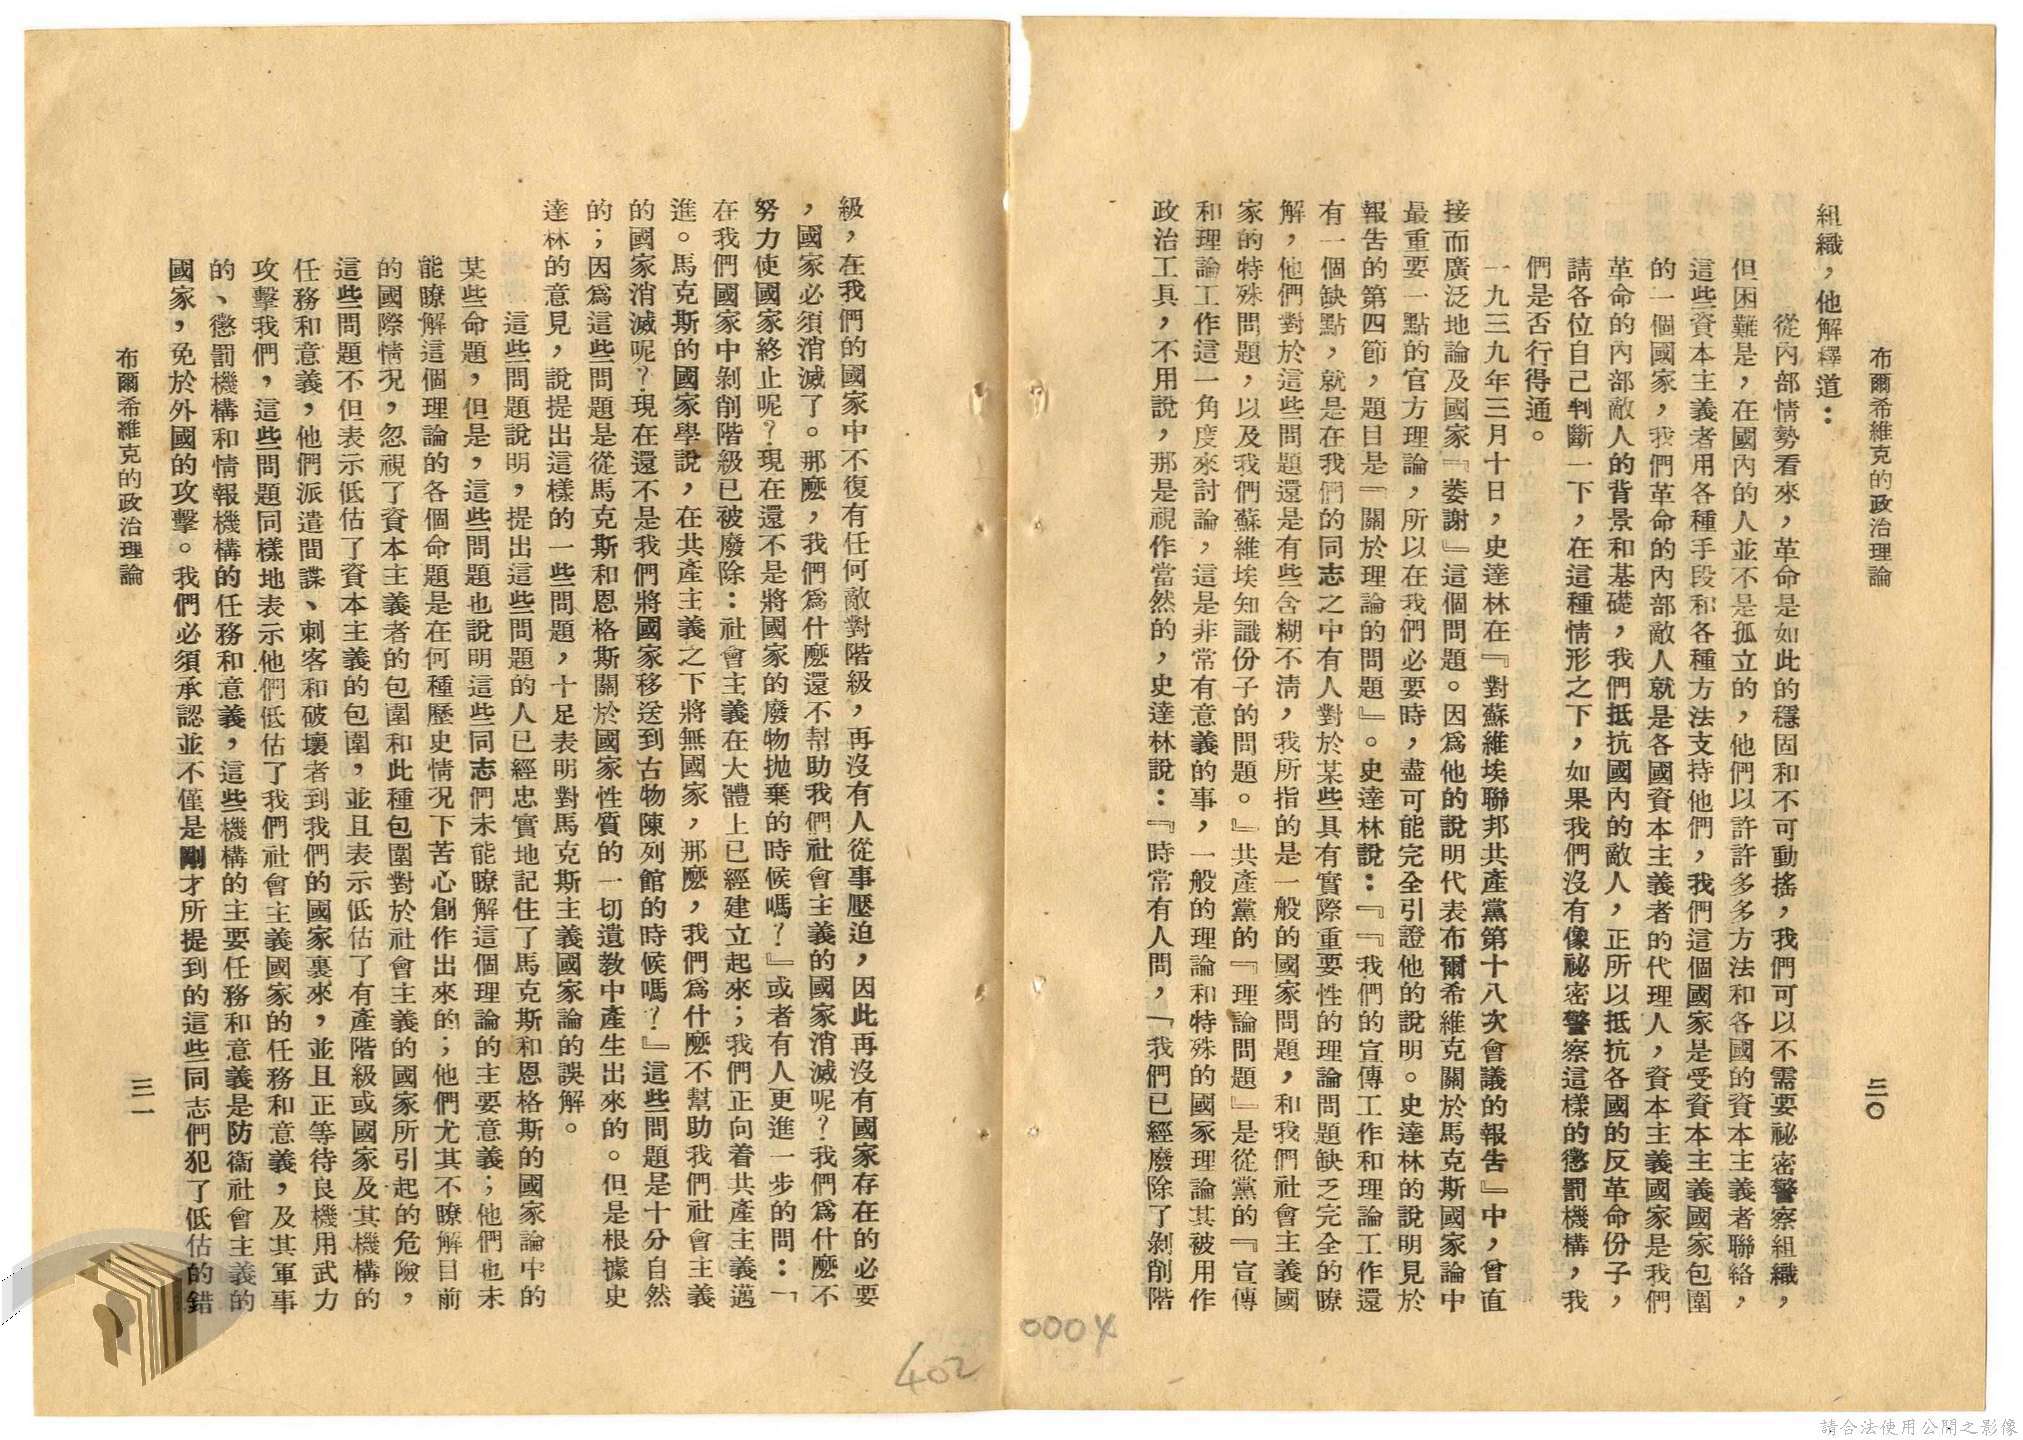 布爾希維克的政治理論
三〇
組織，他解釋道：
從內部情勢看來，革命是如此的穩固和不可動搖，我們可以不需要祕密警察組織，
但困難是，在國內的人並不是孤立的，他們以許許多多方法和各國的資本主義者聯絡，
這些資本主義者用各種手段和各種方法支持他們，我們這個國家是受資本主義國家包圍
的一個國家，我們革命的內部敵人就是各國資本主義者的代理人，資本主義國家是我們
革命的內部敵人的背景和基礎，我們抵抗國內的敵人，正所以抵抗各國的反革命份子，
請各位自己判斷一下，在這種情形之下，如果我們沒有像祕密警察這樣的懲罰機構，我
們是否行得通。
一九三九年三月十日，史達林在『對蘇維埃聯邦共產黨第十八次會議的報告』中，曾直
接而廣泛地論及國家『萎謝』這個問題。因爲他的說明代表布爾希維克關於馬克斯國家論中
最重要一點的官方理論，所以在我們必要時，盡可能完全引證他的說明。史達林的說明見於
報告的第四節，題目是『關於理論的問題』。史達林說：『『我們的宣傳工作和理論工作還
有一個缺點，就是在我們的同志之中有人對於某些具有實際重要性的理論問題缺乏完全的瞭
解，他們對於這些問題還是有些含糊不淸，我所指的是一般的國家問題，和我們社會主義國
家的特殊問題，以及我們蘇維埃知識份子的問題。』共產黨的『理論問題』是從黨的『宣傳
和理論工作這一角度來討論，這是非常有意義的事，一般的理論和特殊的國家理論其被用作
政治工具，不用說，那是視作當然的，史達林說：『時常有人問，「我們已經廢除了剝削階
級，在我們的國家中不復有任何敵對階級，再沒有人從事壓迫，因此再沒有國家存在的必要
，國家必須消滅了。那麽，我們爲什麽還不幫助我們社會主義的國家消滅呢？我們爲什麽不
努力使國家終止呢？現在還不是將國家的廢物拋棄的時候嗎？』或者有人更進一步的問：「
在我們國家中剝削階級已被廢除：社會主義在大體上已經建立起來；我們正向着共產主義邁
進。馬克斯的國家學說，在共產主義之下將無國家，那麽，我們爲什麽不幫助我們社會主義
的國家消滅呢？現在還不是我們將國家移送到古物陳列館的時候嗎？』這些問題是十分自然
的；因爲這些問題是從馬克斯和恩格斯關於國家性質的一切遺教中產生出來的。但是根據史
達林的意見，說提出這樣的一些問題，十足表明對馬克斯主義國家論的誤解。
這些問題說明，提出這些問題的人已經忠實地記住了馬克斯和恩格斯的國家論中的
某些命題，但是，這些問題也說明這些同志們未能瞭解這個理論的主要意義；他們也未
能瞭解這個理論的各個命題是在何種歷史情况下苦心創作出來的；他們尤其不瞭解目前
的國際情况，忽視了資本主義者的包圍和此種包圍對於社會主義的國家所引起的危險，
這些問題不但表示低估了資本主義的包圍，並且表示低估了有產階級或國家及其機構的
任務和意義，他們派遣間諜、刺客和破壞者到我們的國家裏來，並且正等待良機用武力
攻擊我們，這些問題同樣地表示他們低估了我們社會主義國家的任務和意義，及其軍事
的、懲罰機構和情報機構的任務和意義，這些機構的主要任務和意義是防衞社會主義的
國家，免於外國的攻擊。我們必須承認並不僅是剛才所提到的這些同志們犯了低估的錯
布爾希維克的政治理論
三一
0004
402
請合法使用公開之影像